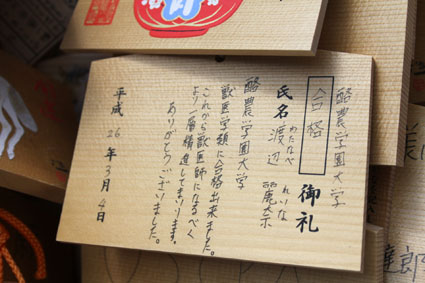 酪農学園大学
合格 御礼
氏名 渡辺 麗奈
わたなべ れいな
酪農学園大学
獣医学類に合格出来ました。
これから獣医師になるべく
より一層精進してまいります。
ありがとうございました。
平成26年3月4日